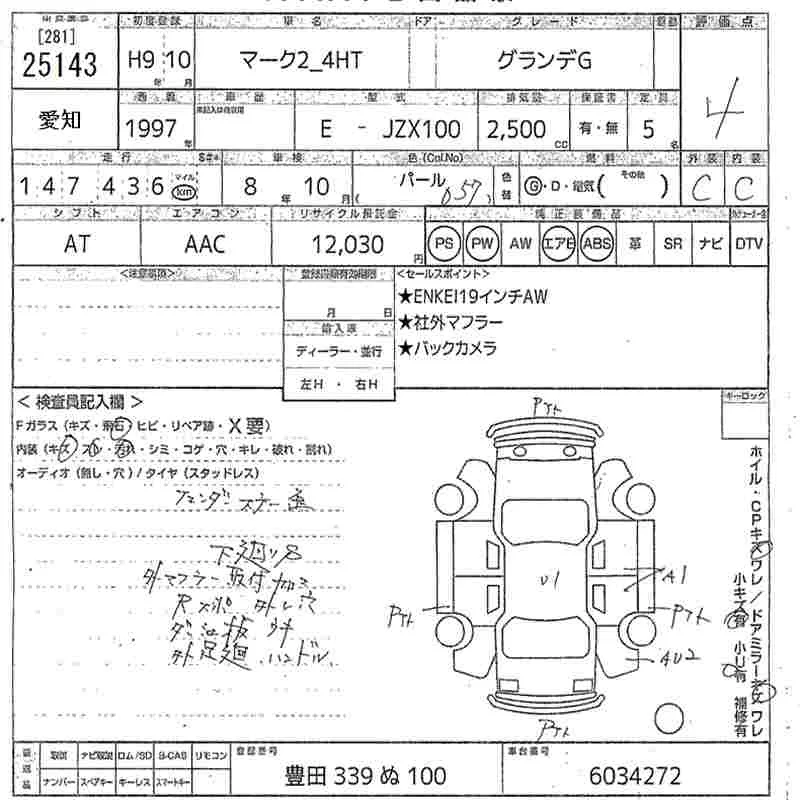 [281]
25143
初度登録
H9 年 10 月
車名
マーク2_4HT
ドア
グレード
グランデG
評価点
4
愛知
西暦
1997 年
車歴
型式
E - JZX100
排気量
2,500 CC
保証書
有・無
定員
5 名
走行
147436 マイル km
車検
8 年 10 月
色(Col.No)
パール 057
色替
燃料
G・D・電気 ( その他 )
外装
C
内装
C
シフト
AT
エアコン
AAC
リサイクル預託金
12,030 円
純正装備品
PS PW AW エアB ABS 革 SR ナビ DTV
<注意事項>
登録書類有効期限
月 日
輸入車
ディーラー・並行
左H ・ 右H
<セールスポイント>
★ENKEI19インチAW
★社外マフラー
★バックカメラ
< 検査員記入欄 >
Fガラス (キズ・飛石・ヒビ・リペア跡・X要)
内装 (キズ・スレ・汚れ・シミ・コゲ・穴・キレ・破れ・割れ)
オーディオ (無し・穴) / タイヤ (スタッドレス)
フェンダー ステー
下廻りS
外マフラー取付加工
Rスポ 外レ穴
外足廻 ハンドル
キーロック
Pタト
U1
A1
Pタト
Pタト
AU2
Pタト
ホイル・CPキズワレ / ドアミラーキズワレ
小キズ有 小U有 補修有
返送品
取説 ナビ取説 ロム/SD B-CAS リモコン
ナンバー スペアキー キーレス スマートキー
登録番号
豊田 339 ぬ 100
車台番号
6034272